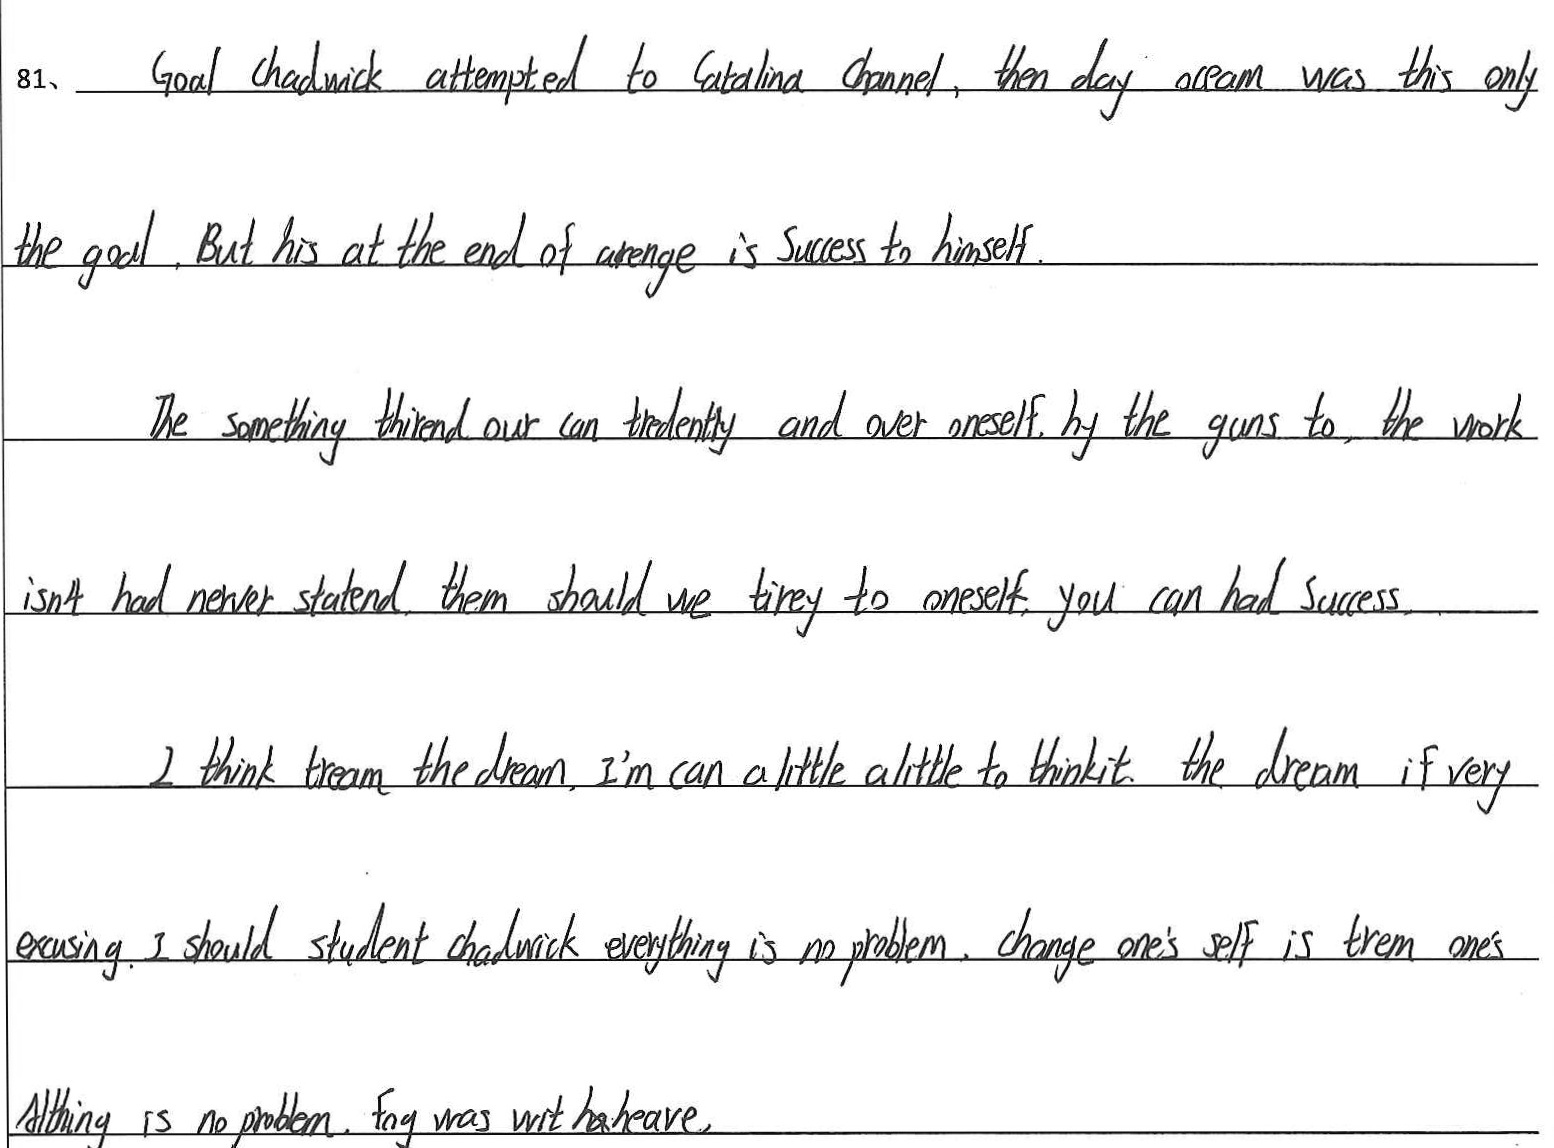 81、 Goal chadwick attempted to Catalina Channel, then day oceam was this only
the goal. But his at the end of arenge is Success to himself.
The something thirend our can tredently and over oneself. by the guns to, the work
isn't had nerver statend. them should we tirey to oneself. you can had Success.
I think tream the dream. I'm can a little a little to thinkit. the dream if very
excusing. I should student chadwick everything is no problem. change one's self is trem one's
Allthing is no problem. Fog was wit heave.